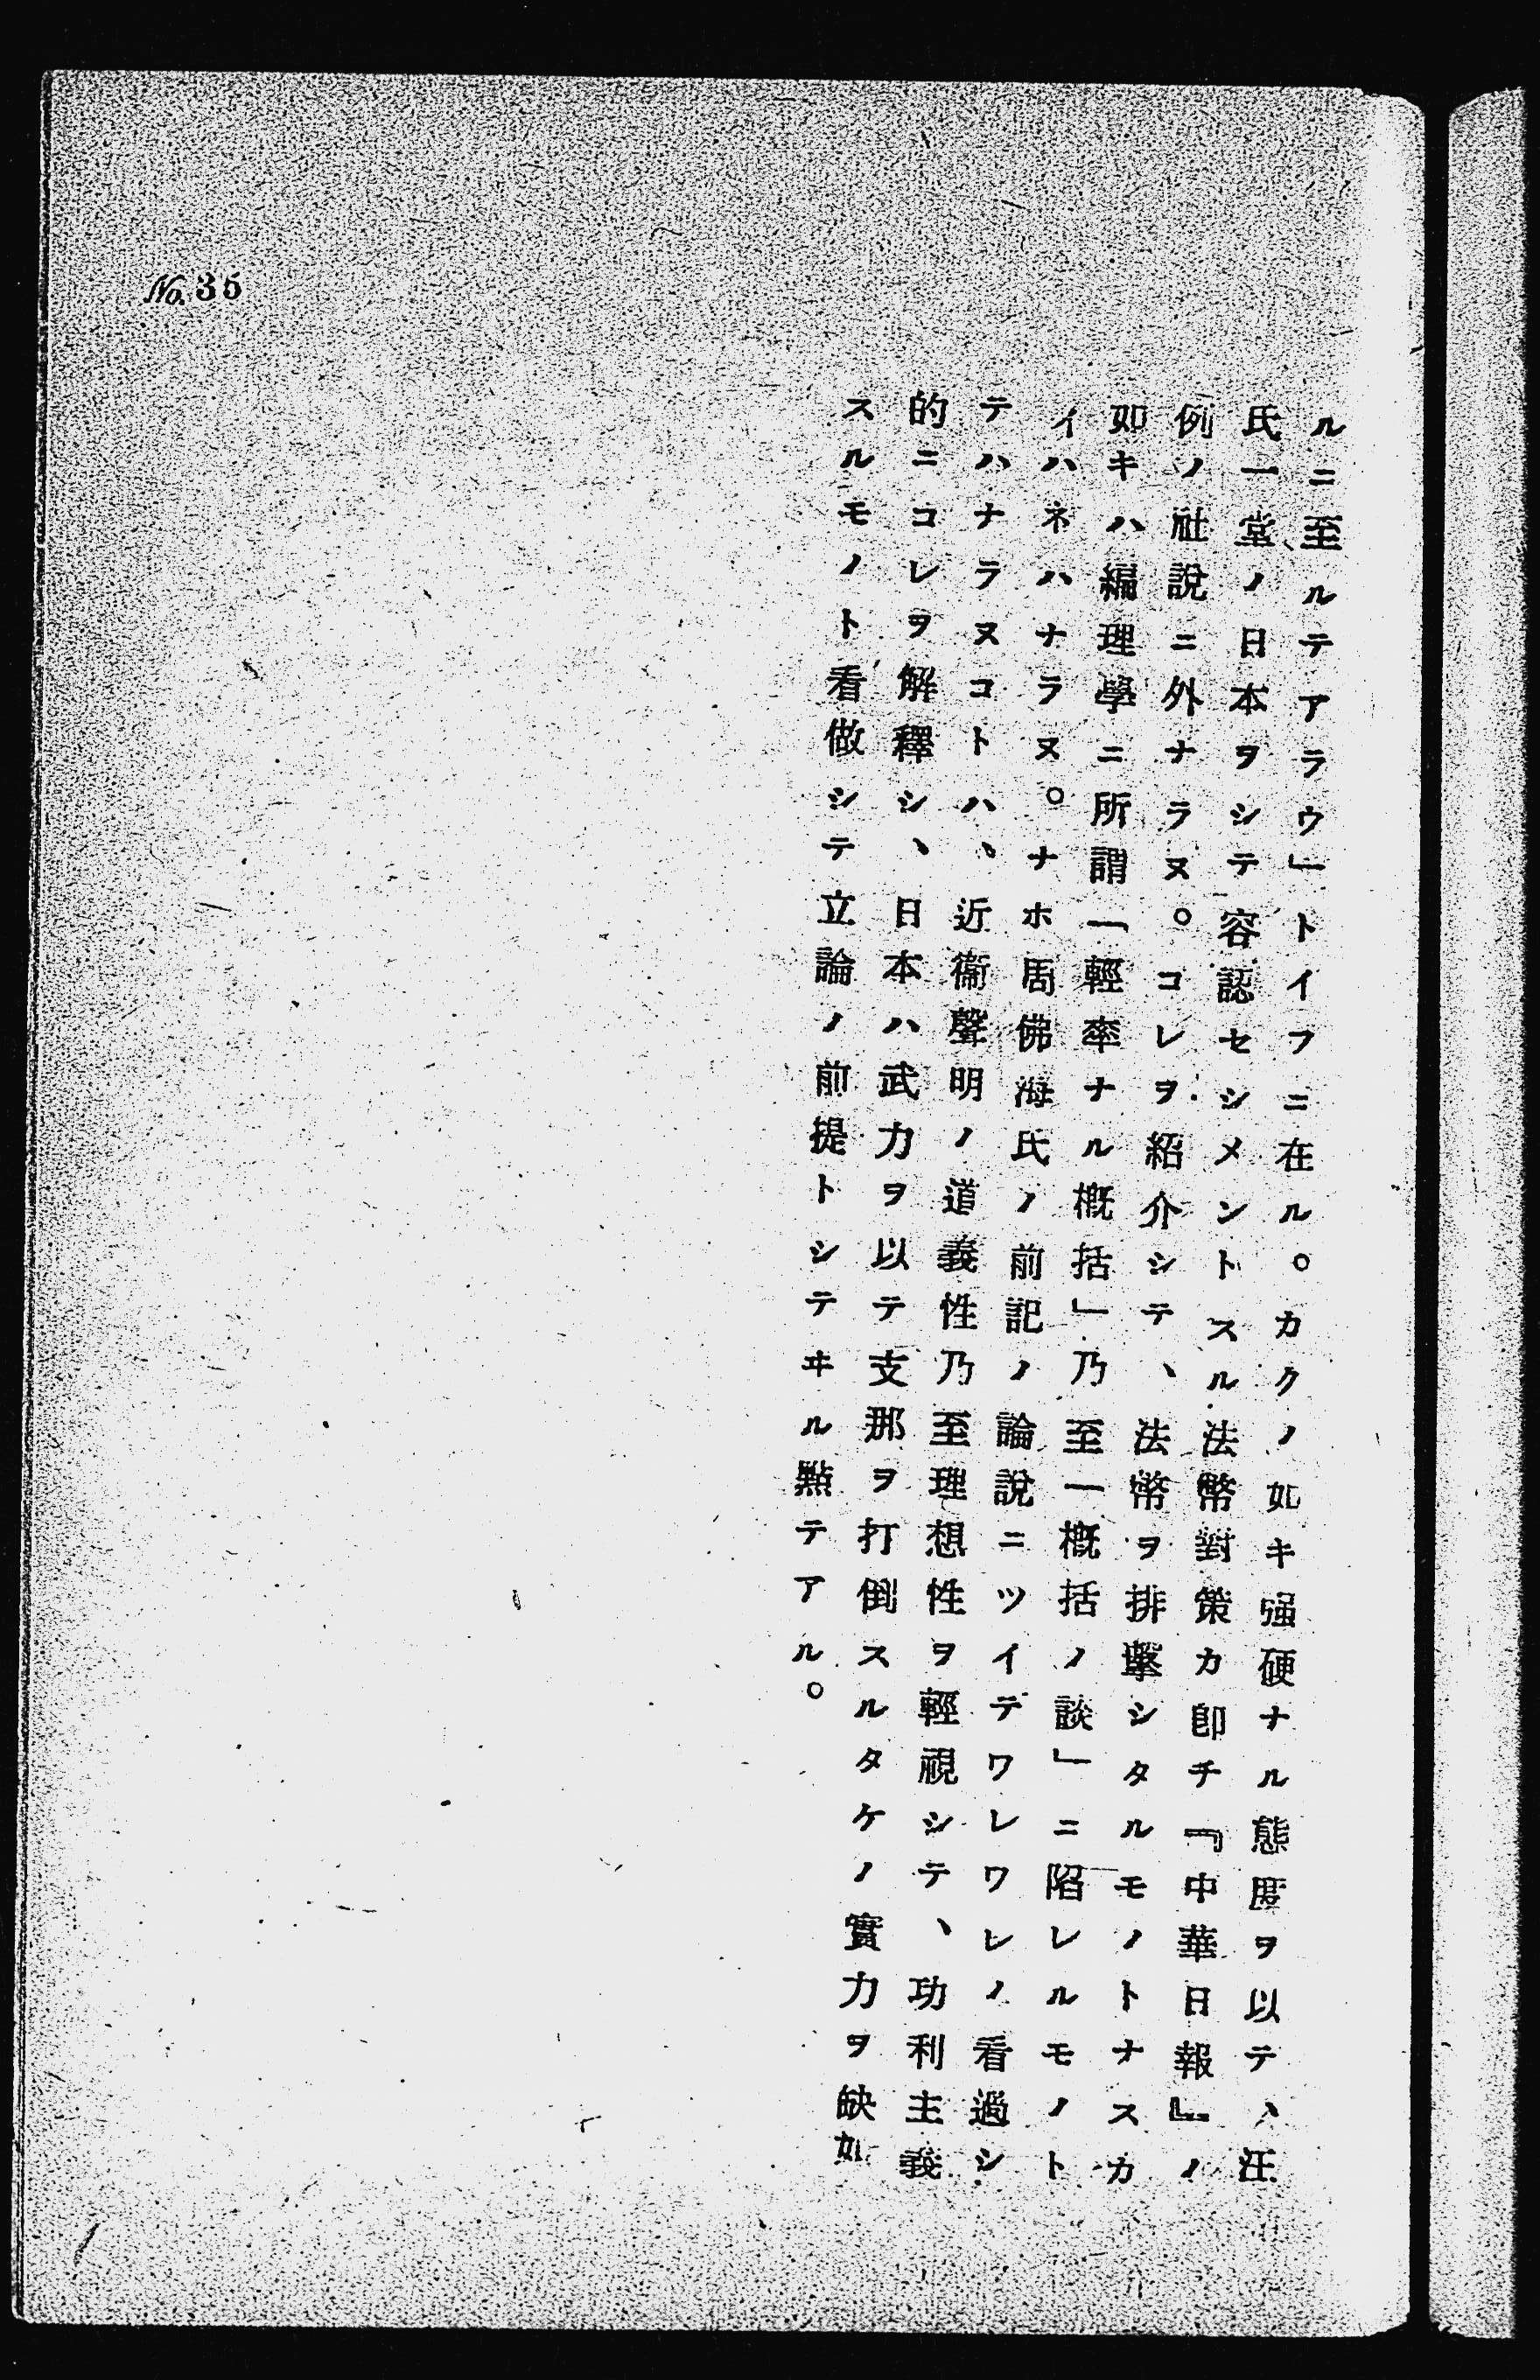 ルニ至ルテアラウ」トイフニ在ル。カクノ如キ强硬ナル態度ヲ以テ、汪
氏一堂ノ日本ヲシテ容認セシメントスル法幣對策カ卽チ『中華日報』ノ
例ノ社說ニ外ナラヌ。コレヲ紹介シテ、法幣ヲ排擊シタルモノトナスカ
如キハ編理學ニ所謂「輕率ナル槪括」乃至一槪括ノ談」ニ陷レルモノト
イハネハナラヌ。ナホ周佛海氏ノ前記ノ論說ニツイデワレワレノ看過シ
テハナラヌコトハ、近衞聲明ノ道義性乃至理想性ヲ輕視シテ、功利主義
的ニコレヲ解釋シ、日本ハ武力ヲ以テ支那ヲ打倒スルタケノ實力ヲ缺如
スルモノト看做シテ立論ノ前提トシテヰル點テアル。
No. 35